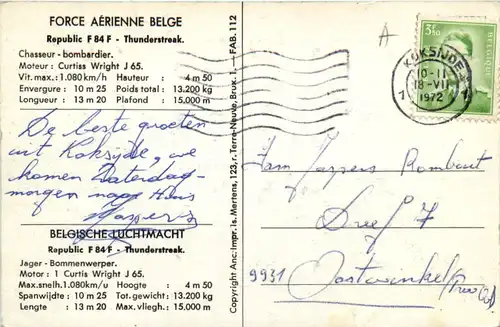 FORCE AÉRIENNE BELGE
Republic F 84 F - Thunderstreak.
Chasseur - bombardier.
Moteur : Curtiss Wright J 65.
Vit. max. : 1.080 km/h Hauteur : 4 m 50
Envergure : 10 m 25 Poids total : 13.200 kg
Longueur : 13 m 20 Plafond : 15.000 m
De beste groeten
uit Koksijde, we
komen Zaterdag-
morgen naar Huis
Jaspers
BELGISCHE LUCHTMACHT
Republic F 84 F - Thunderstreak.
Jager - Bommenwerper.
Motor : 1 Curtis Wright J 65.
Max. snelh. 1.080 u/ Hoogte : 4 m 50
Spanwijdte : 10 m 25 Tot. gewicht : 13.200 kg
Lengte : 13 m 20 Max. vliegh. : 15.000 m
Copyright Anc. Impr. Is. Mertens, 123, r. Terre-Neuve, Brux. 1. — FAB. 112
A
KOKSIJDE
10-11
18-VII
1972
1 1
Fam Jaspers Rombout
Dreef 7
9931 Oostwinkel